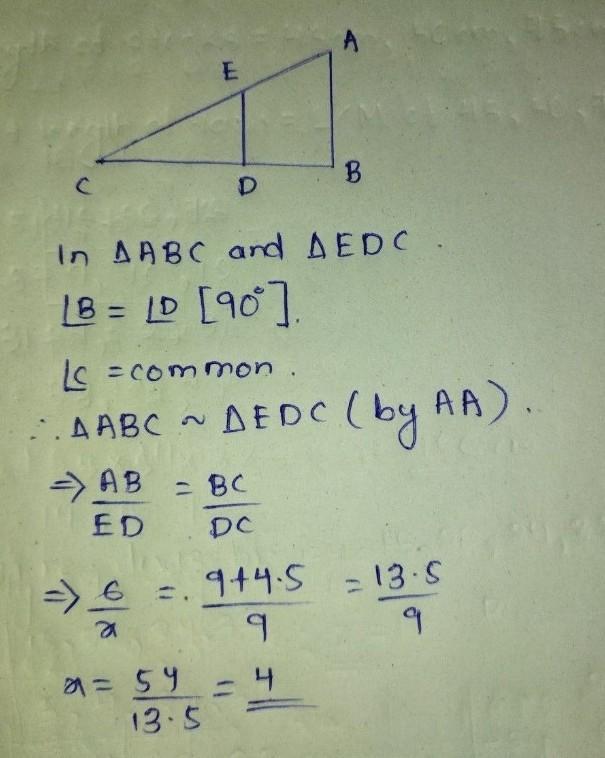 A
E
C
D
B
In ΔABC and ΔEDC.
∠B = ∠D [90°].
∠C = common.
∴ ΔABC ~ ΔEDC (by AA).
⇒ AB/ED = BC/DC
⇒ 6/x = 9+4.5/9 = 13.5/9
x = 54/13.5 = 4